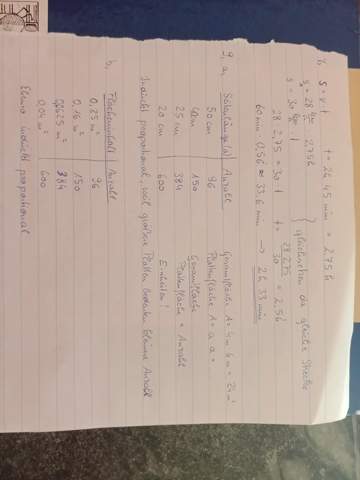 7, s = v · t    t = 2h 45 min = 2,75 h
s = 28 km/h · 2,75 h
s = 30 km/h · t
gleichsetzen da gleiche Strecke
28 · 2,75 = 30 · t    t = 28 · 2,75 / 30 = 2,56
60 min · 0,56 = 33,6 min → 2h 33 min
9, a, Seitenlänge (a) | Anzahl
50 cm | 96
40 cm | 150
25 cm | 384
20 cm | 600
Gesamtfläche A = 4m · 6m = 24 m²
Plattenfläche A = a · a =
Gesamtfläche / Plattenfläche = Anzahl
Einheiten!
Indirekt proportional, weil großen Platten bedeuten kleine Anzahl
b, Flächeninhalt | Anzahl
0,25 m² | 96
0,16 m² | 150
0,0625 m² | 384
0,04 m² | 600
Ebenso indirekt proportional